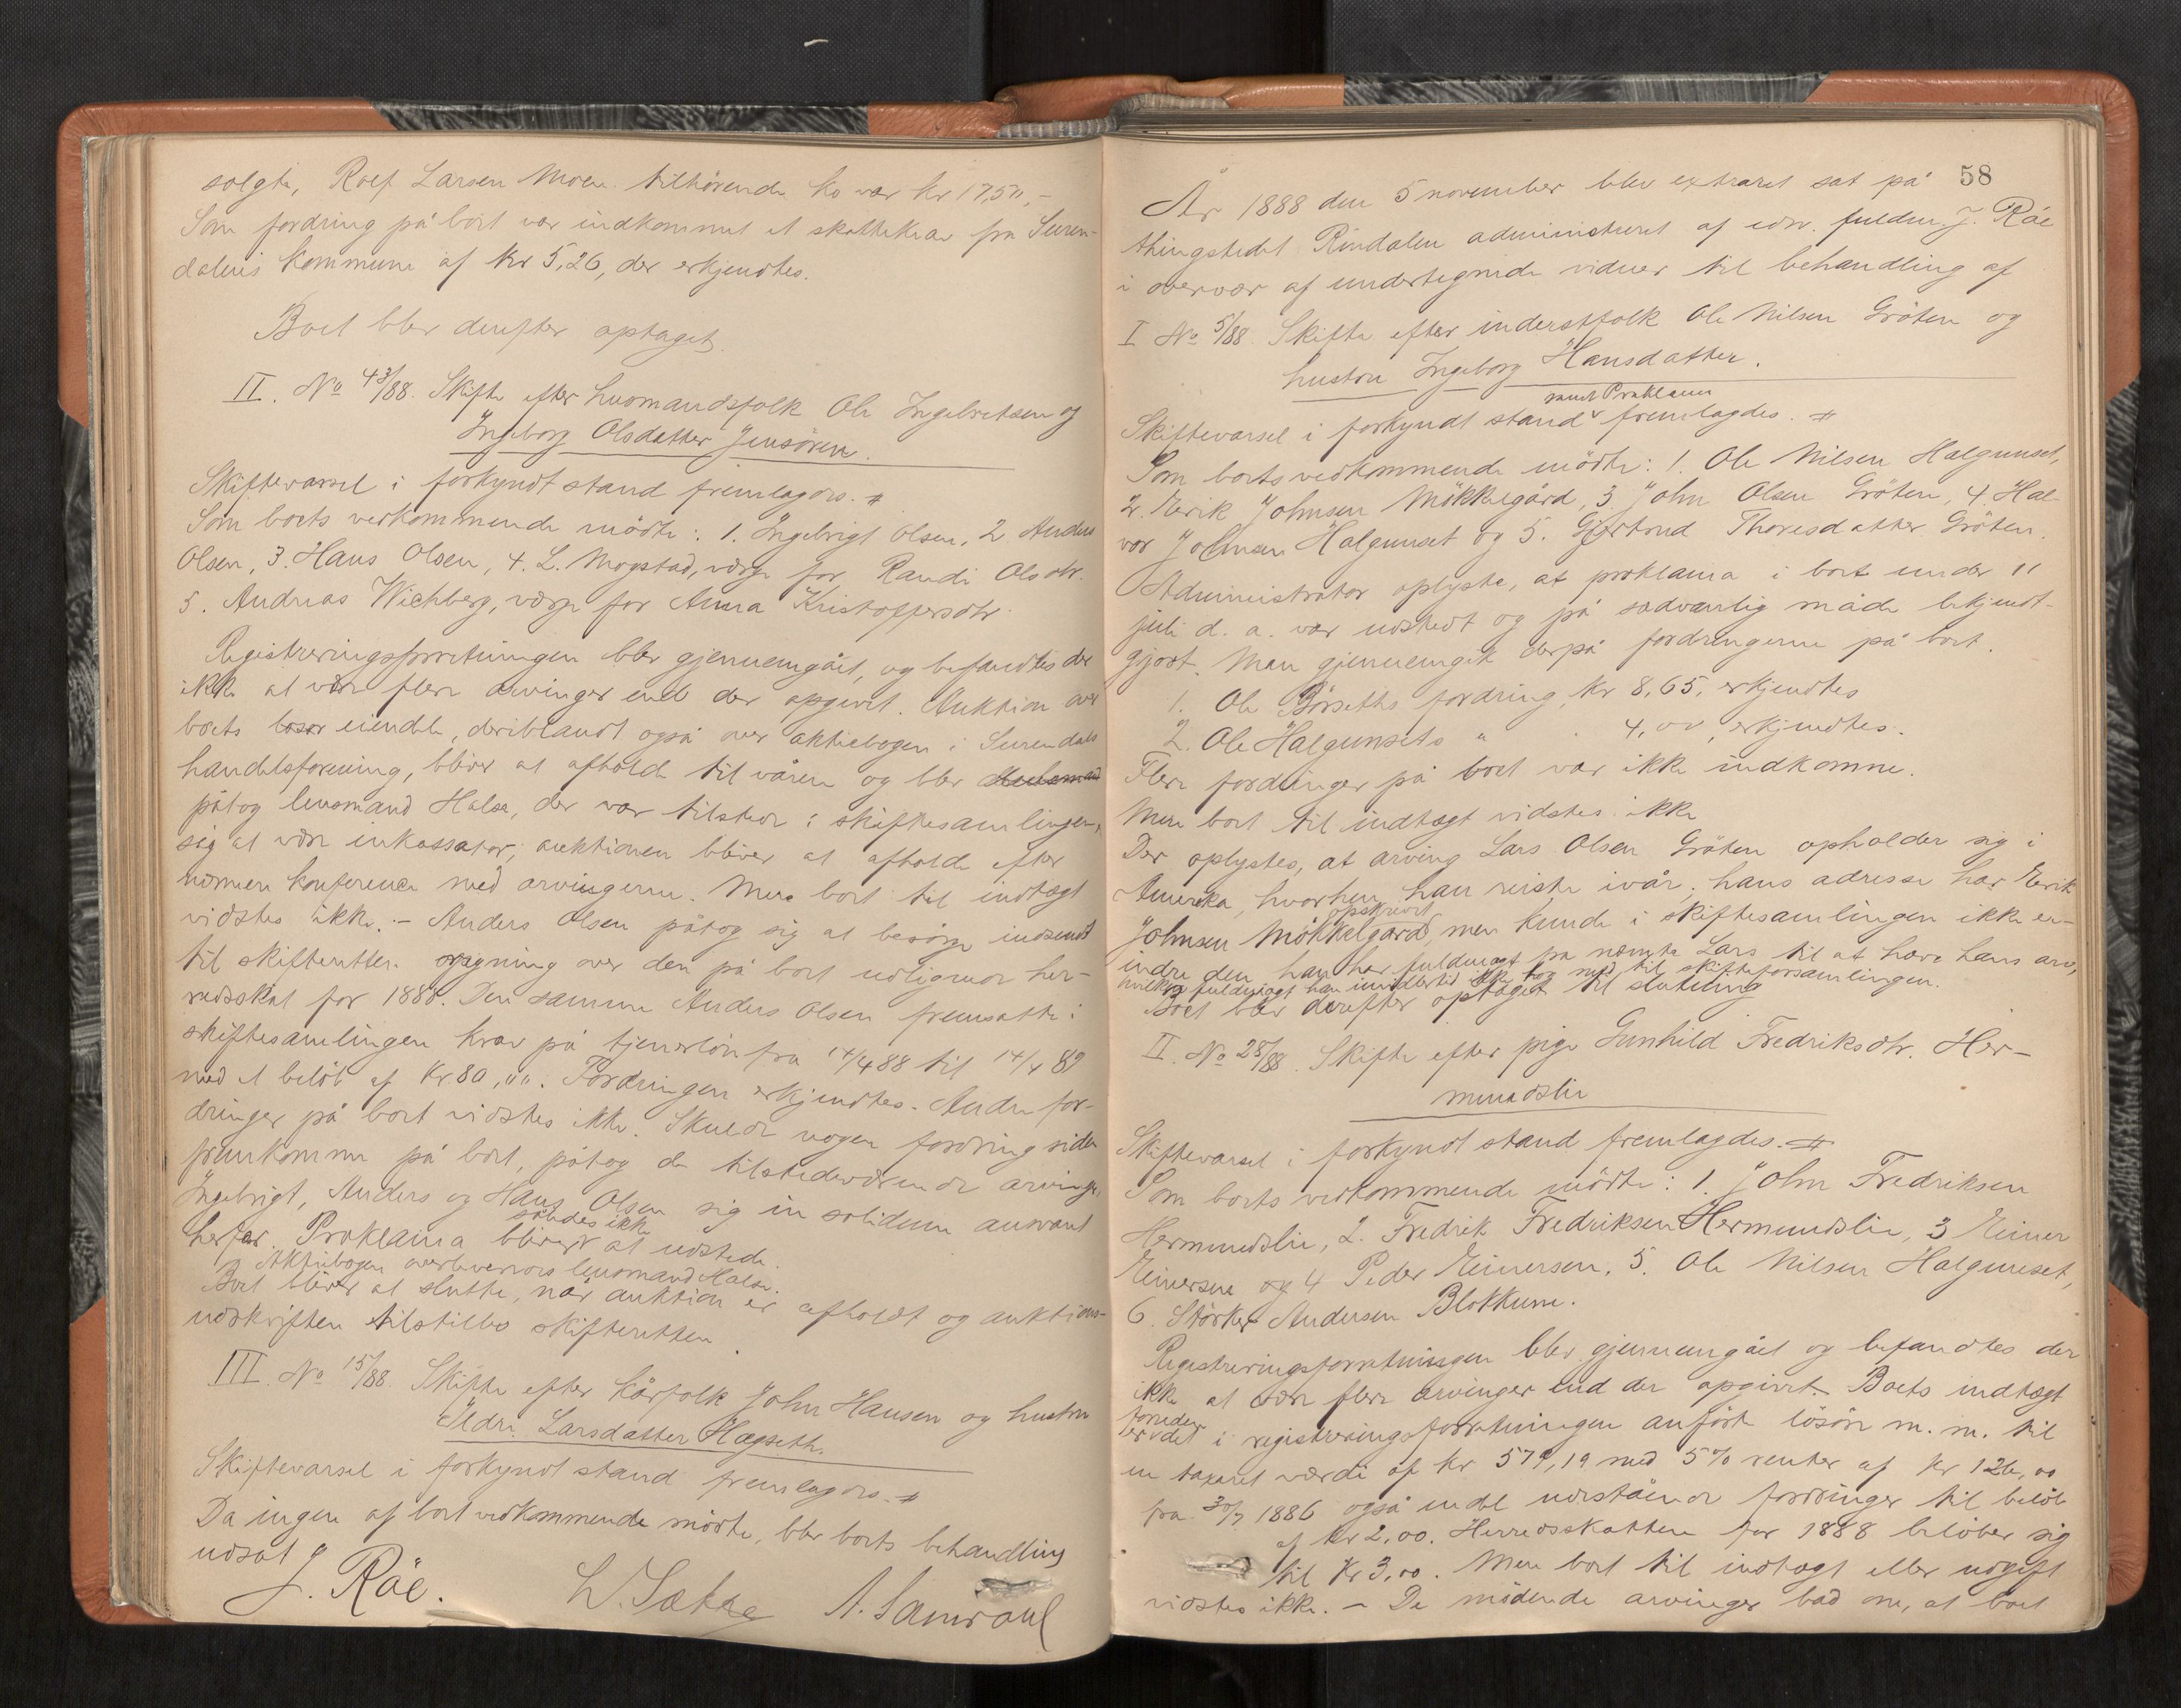 solgte, Roef Larsen Moen tilhørende ko var kr 17,50,-
Som fordring på boet var indkommet et skattekrav fra Suren-
dalens kommune af kr 5,26, der erkjendtes.
Boet blev derefter optaget.
II. No 43/88. Skifte efter husmandsfolk Ole Ingebretsen og
Ingeborg Olsdatter Jensören.
Skiftevarsel i forkyndt stand fremlagdes. #
Som boets vedkommende mödte: 1. Ingebrigt Olsen, 2 Anders
Olsen, 3. Hans Olsen, 4. L. Mogstad, værge for Randi Olsdtr.
5. Andreas Wichberg, værge for Anna Kristoffersdtr.
Registreringsforretningen blev gjennemgået, og befandtes der
ikke at være flere arvinger end der opgivet. Auktion over
boets løsør eiendele, deriblandt også over aktiebogen i Surendals
handelsforening, bliver at afholde til våren og blev
påtog lensmand Halse, der var tilstede i skiftesamlingen,
sig at være inkassator; auktionen bliver at afholde efter
nærmere konference med arvingerne. Mere boet til indtægt
vidstes ikke. - Anders Olsen påtog sig at besörge indsendt
til skifteretten opgjening over den på boet udlignede her-
redsskat for 1888. Den samme Anders Olsen fremsatte i
skiftesamlingen krav på tjenerlön fra 14/4 88 til 14/4 89
med et belöb af Kr. 80,"". Fordringen erkjendtes. Andre for-
dringer på boet vidstes ikke. Skulde nogen fordring siden
fremkomme på boet, påtog de tilstedeværende arvinger,
Ingebrigt, Anders og Hans Olsen sig in solidum ansvaret
herfor. Proklama bliver således ikke at udstede.
Aktiebogen overleveredes lensmand Halse.
Boet bliver at slutte, når auktion er afholdt og auktions-
udskriften tilstilles skifteretten
III. No 15/88. Skifte efter kårfolk John Hansen og hustru
Ildri Larsdatter Hagseth.
Skiftevarsel i forkyndt stand fremlagdes. #
Da ingen af boet vedkommende mödte, blev boets behandling
udsat
J. Räe. L. Sæther A. Samdahl
58
År 1888 den 5 november blev extraret sat på
thingstedet Rindalen administreret af edsv. fuldm. J. Räe
i overvær af undertegnede vidner til behandling af
I No 5/88. Skifte efter inderstfolk Ole Nilsen Gröten og
hustru Ingeborg Hansdatter.
Skiftevarsel i forkyndt stand samt Proklama fremlagdes. #
Som boets vedkommende mödte: 1. Ole Nilsen Halgunset,
2. Eerik Johnsen Mökkelgård, 3. John Olsen Gröten, 4. Hal-
vor Johnsen Halgunset og 5. Gjertrud Thoresdatter Gröten.
Administrator oplyste, at proklama i boet under 11
juli d. a. var udstedt og på sædvanlig måde bekjendt-
gjort. Man gjennemgik derpå fordringerne på boet.
1. Ole Börseths fordring, kr 8,65, erkjendtes
2. Ole Halgunsets " 4,00, erkjendtes.
Flere fordringer på boet var ikke indkomne.
Mere boet til indtægt vidstes ikke
Der oplystes, at arving Lars Olsen Gröten opholder sig i
Amerika, hvorhen han reiste ivår; hans adresse har Eerik
Johnsen Mökkelgård opskrevet, men kunde i skiftesamlingen ikke er-
indre den, han har fuldmagt fra nævnte Lars til at hæve hans arv,
hvilken fuldmagt han imidlertid ikke tog med til skifteforsamlingen.
Boet blev derefter optaget til slutning
II. No 28/88. Skifte efter pige Gunhild Fredriksdtr. Her-
mundslie
Skiftevarsel i forkyndt stand fremlagdes. #
Som boets vedkommende mödte: 1. John Fredriksen
Hermundslie, 2. Fredrik Fredriksen Hermundslie, 3 Einer
Einersen og 4 Peder Einersen, 5. Ole Nilsen Halgunset,
6. Störker Andersen Blokkum.
Registreringsforretningen blev gjennemgået og befandtes der
ikke at være flere arvinger end der opgivet. Boets indtægt
foruden er det i registreringsforretningen anförte lösöre m. m. til
en taxeret værdi af kr 579,19 med 5% renter af kr 126,00
fra 30/7 1886 også endel udestående fordringer til belöb
af kr 2,00. Herredsskatten for 1888 belöber sig
til Kr 3,00. Mere boet til indtægt eller udgift
vidstes ikke. - De mödende arvinger bad om, at boet